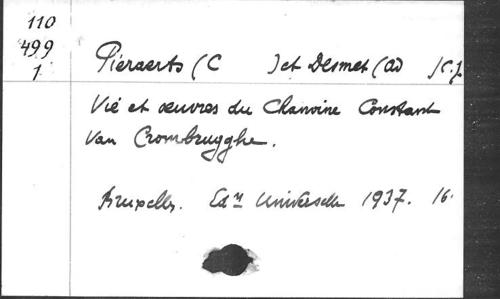 110
499
1
Pieraerts (C ) et Desmet (Ad ) S.J.
Vie et œuvres du Chanoine Constant
Van Crombrugghe.
Bruxelles. Edns Universelle 1937. 16.